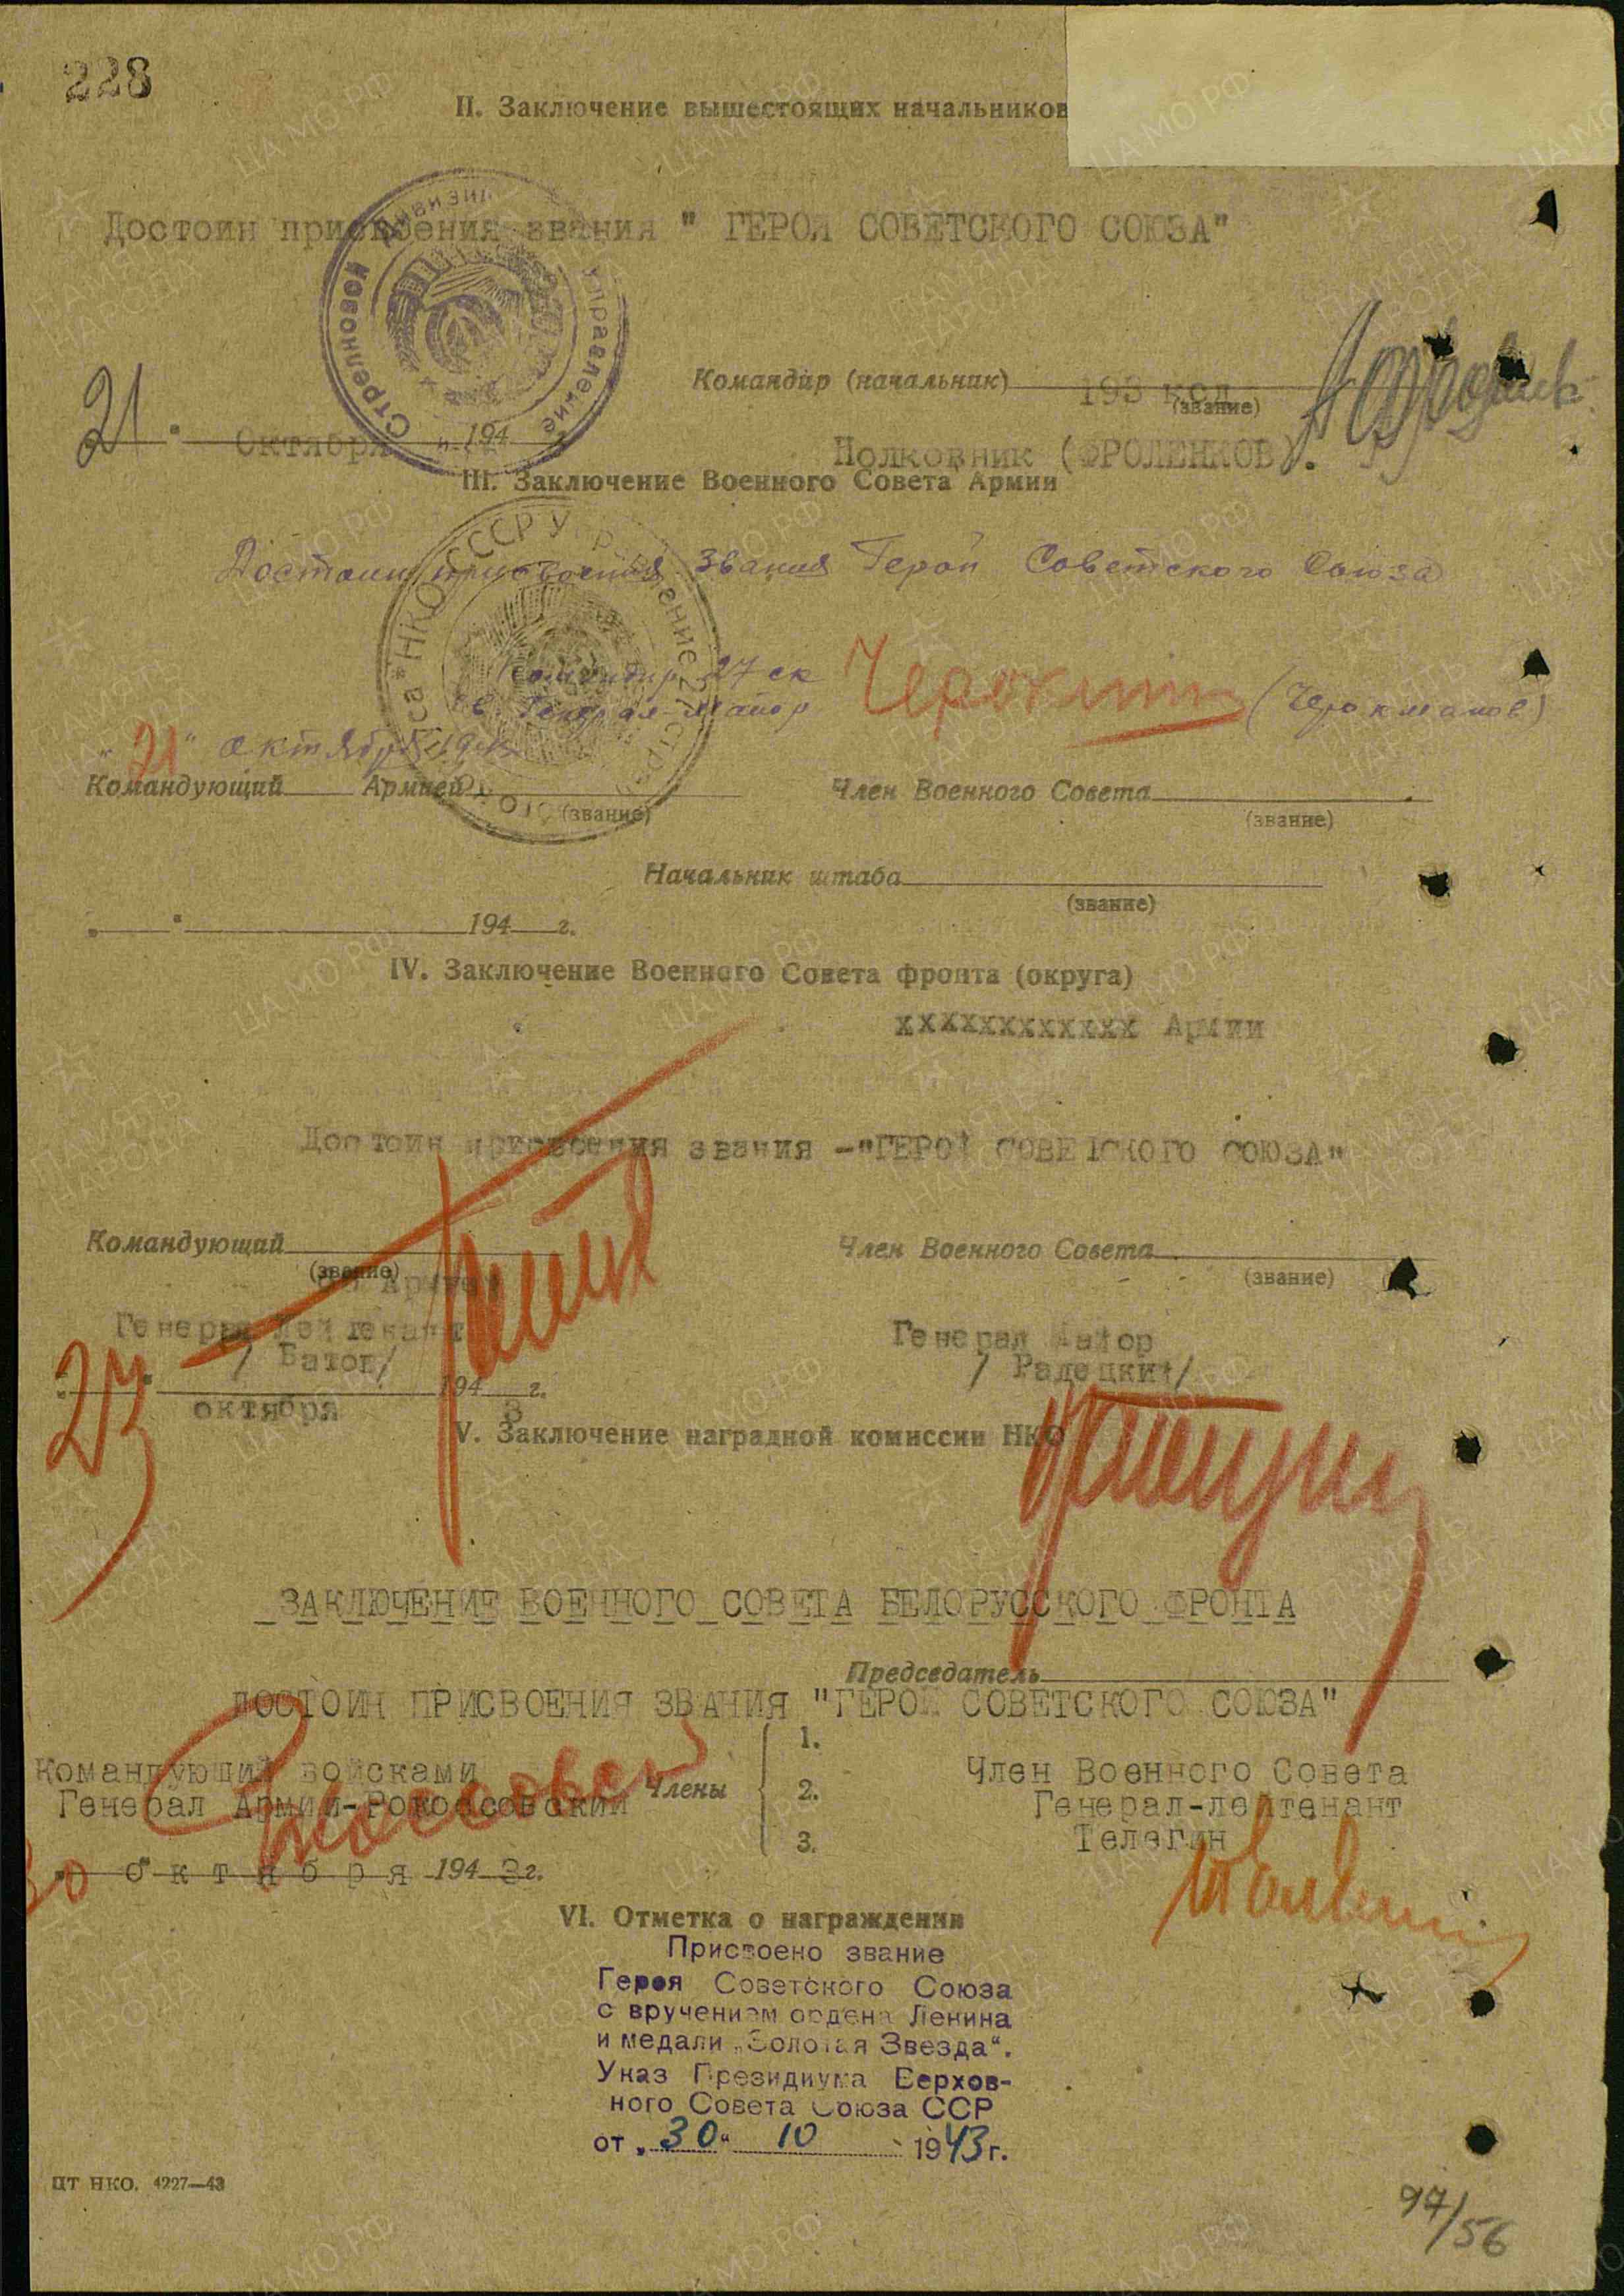 228
II. Заключение вышестоящих начальников
Достоин присвоения звания " ГЕРОЯ СОВЕТСКОГО СОЮЗА"
Стрелковой дивизии Управление
Командир (начальник) 193 ксд
(звание)
21 Октября 194
Полковник (ФРОЛЕНКОВ).
III. Заключение Военного Совета Армии
Достоин присвоения звания Герой Советского Союза
Командир 27 ск
Гв. Генерал-майор (Черокманов)
"21" октября 1943
Командующий Армией
(звание)
Член Военного Совета
(звание)
Начальник штаба
(звание)
194 г.
IV. Заключение Военного Совета фронта (округа)
хххххххххххх Армии
Достоин присвоения звания -"ГЕРОЙ СОВЕТСКОГО СОЮЗА"
Командующий
(звание)
Армией
Генерал Лейтенант
/ Батов/
Член Военного Совета
(звание)
Генерал Майор
/ Радецкий/
октября 194 3 г.
V. Заключение наградной комиссии НКО
ЗАКЛЮЧЕНИЕ ВОЕННОГО СОВЕТА БЕЛОРУССКОГО ФРОНТА
Председатель
ДОСТОИН ПРИСВОЕНИЯ ЗВАНИЯ "ГЕРОЙ СОВЕТСКОГО СОЮЗА"
Командующий войсками
Генерал Армии-Рокоссовский
Члены
1.
2.
3.
Член Военного Совета
Генерал-лейтенант
Телегин
30 октября 194 3 г.
VI. Отметка о награждении
Присвоено звание
Героя Советского Союза
с вручением ордена Ленина
и медали „Золотая Звезда“.
Указ Президиума Верхов-
ного Совета Союза ССР
от „30“ 10 1943 г.
ЦТ НКО. 4227—43
97/56